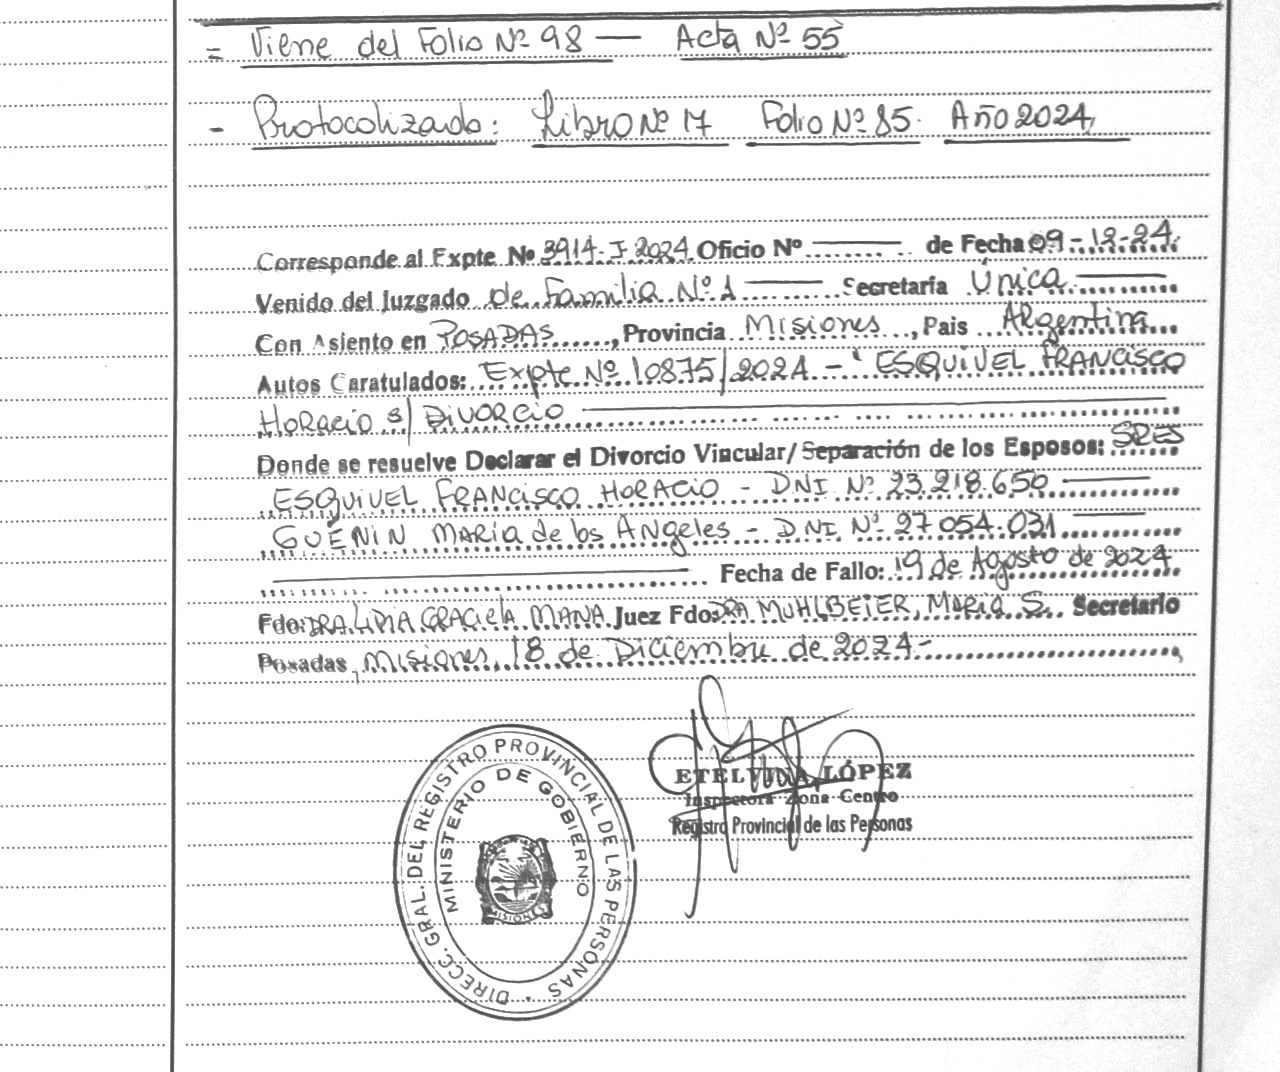 = Viene del Folio Nº 98 — Acta Nº 55
- Protocolizado: Libro Nº 17 Folio Nº 85. Año 2024,
Corresponde al Expte Nº 3914-I-2024 Oficio Nº ——— de Fecha 09-12-24
Venido del Juzgado de Familia Nº 1 ——— Secretaria Única
Con Asiento en POSADAS, Provincia Misiones, Pais Argentina
Autos Caratulados: Expte Nº 10875/2024 - "ESQUIVEL FRANCISCO
HORACIO s/ DIVORCIO
Donde se resuelve Declarar el Divorcio Vincular/Separación de los Esposos: SRES
ESQUIVEL FRANCISCO HORACIO - DNI Nº 23.218.650
GUÉNIN MARÍA de los Angeles - DNI Nº 27.054.031
Fecha de Fallo: 19 de Agosto de 2024
Fdo: DRA LIDIA GRACIELA MANA Juez Fdo: DRA MUHLBEIER, MARIA S. Secretario
Posadas, Misiones, 18 de Diciembre de 2024-
DIRECC. GRAL. DEL REGISTRO PROVINCIAL DE LAS PERSONAS
MINISTERIO DE GOBIERNO
MISIONES
ETELVINA LÓPEZ
Inspectora Zona Centro
Registro Provincial de las Personas